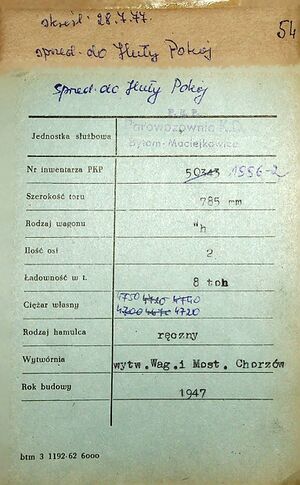 skreśl. 28.7.77.
54
sprzed. do Huty Pokój
sprzed. do Huty Pokój
P.K.P.
Jednostka służbowa Parowozownia K.D.
Bytom-Maciejkowice
Nr inwentarza PKP 50343 1556-2
Szerokość toru 785 mm
Rodzaj wagonu "h
Ilość osi 2
Ładowność w t. 8 ton
4750 4710 4740
Ciężar własny 4700 4675 4720
Rodzaj hamulca ręczny
Wytwórnia wytw.Wag.i Most. Chorzów
Rok budowy 1947
btm 3 1192-62 6000